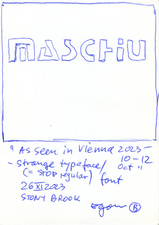 MASCHU
" As seen in Vienna 2023 –
10 – 12
- strange typeface/ Oct "
(= STOP regular) font
26 XI 2023
STONY BROOK